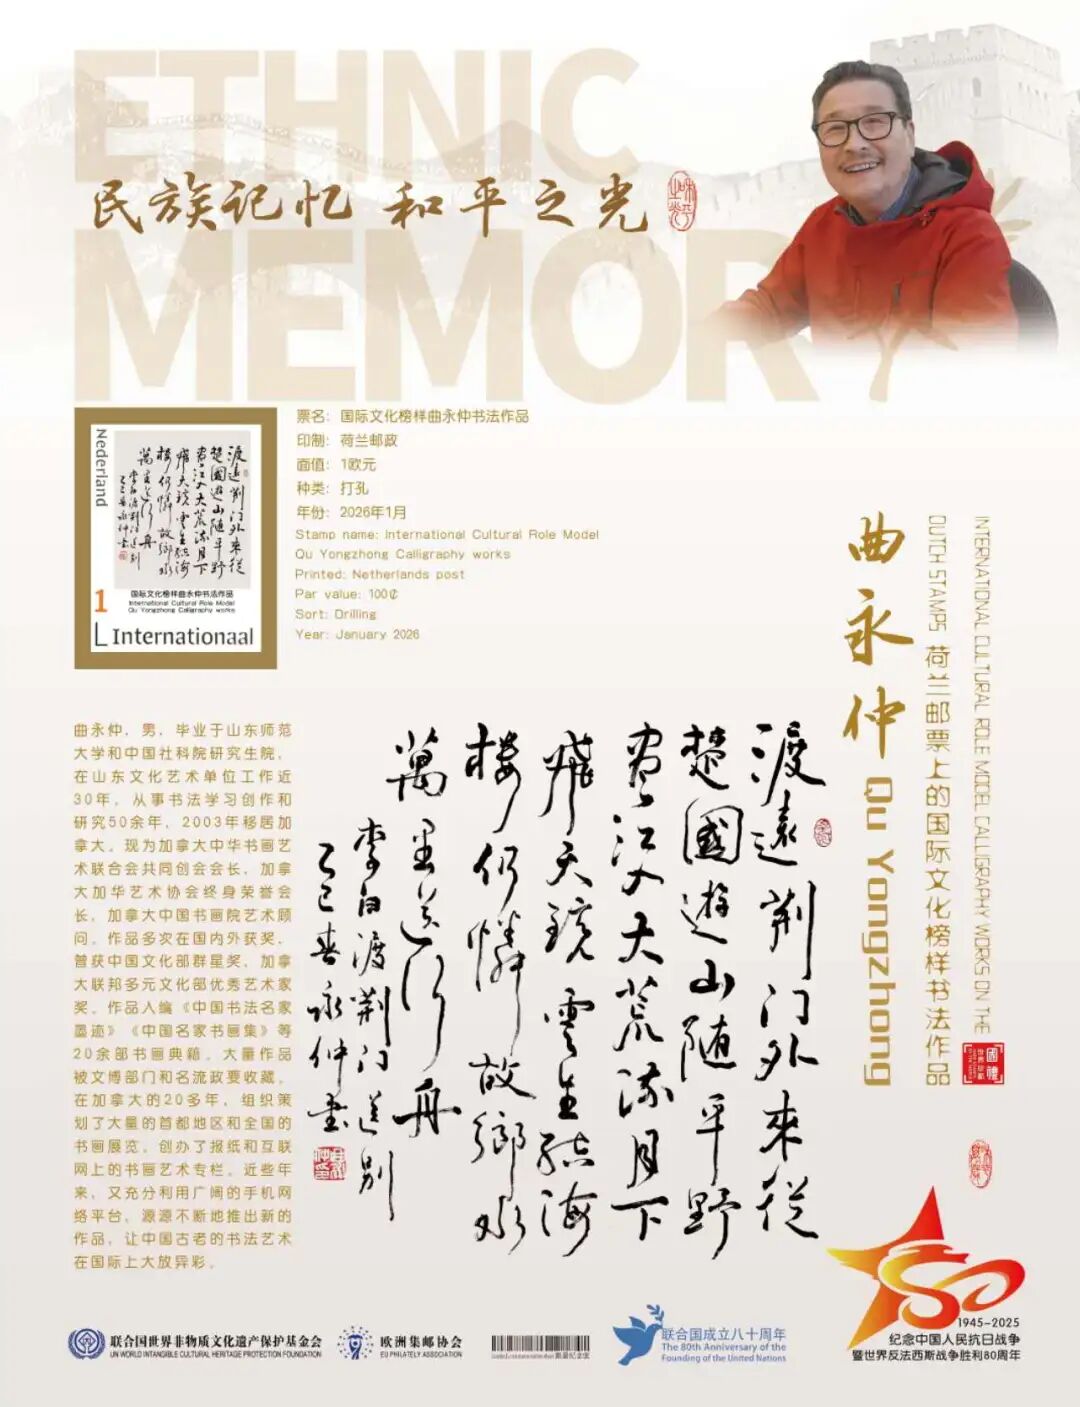 ETHNIC
民族记忆 和平之光
MEMORY
Nederland
渡遠荆门外来從
楚國遊山随平野
盡江入大荒流月下
飛天镜雲生结海
楼仍憐故鄉水
萬里送行舟
李白渡荆门送别
乙巳春永仲书
1
国际文化榜样曲永仲书法作品
International Cultural Role Model
Qu Yongzhong Calligraphy works
Internationaal
票名：国际文化榜样曲永仲书法作品
印制：荷兰邮政
面值：1欧元
种类：打孔
年份：2026年1月
Stamp name: International Cultural Role Model
Qu Yongzhong Calligraphy works
Printed: Netherlands post
Par value: 100₵
Sort: Drilling
Year: January 2026
曲永仲 Qu Yongzhong
DUTCH STAMPS 荷兰邮票上的国际文化榜样书法作品
INTERNATIONAL CULTURAL ROLE MODEL CALLIGRAPHY WORKS ON THE
曲永仲，男，毕业于山东师范
大学和中国社科院研究生院，
在山东文化艺术单位工作近
30年，从事书法学习创作和
研究50余年，2003年移居加
拿大。现为加拿大中华书画艺
术联合会共同创会会长，加拿
大加华艺术协会终身荣誉会
长，加拿大中国书画院艺术顾
问。作品多次在国内外获奖，
曾获中国文化部群星奖、加拿
大联邦多元文化部优秀艺术家
奖。作品入编《中国书法名家
墨迹》《中国名家书画集》等
20余部书画典籍。大量作品
被文博部门和名流政要收藏。
在加拿大的20多年，组织策
划了大量的首都地区和全国的
书画展览，创办了报纸和互联
网上的书画艺术专栏。近些年
来，又充分利用广阔的手机网
络平台，源源不断地推出新的
作品，让中国古老的书法艺术
在国际上大放异彩。
渡遠荆门外来從
楚國遊山随平野
盡江入大荒流月下
飛天镜雲生结海
楼仍憐故鄉水
萬里送行舟
李白渡荆门送别
乙巳春永仲书
联合国世界非物质文化遗产保护基金会
UN WORLD INTANGIBLE CULTURAL HERITAGE PROTECTION FOUNDATION
欧洲集邮协会
EU PHILATELY ASSOCIATION
联合国成立八十周年
The 80th Anniversary of the
Founding of the United Nations
80
1945-2025
纪念中国人民抗日战争
暨世界反法西斯战争胜利80周年